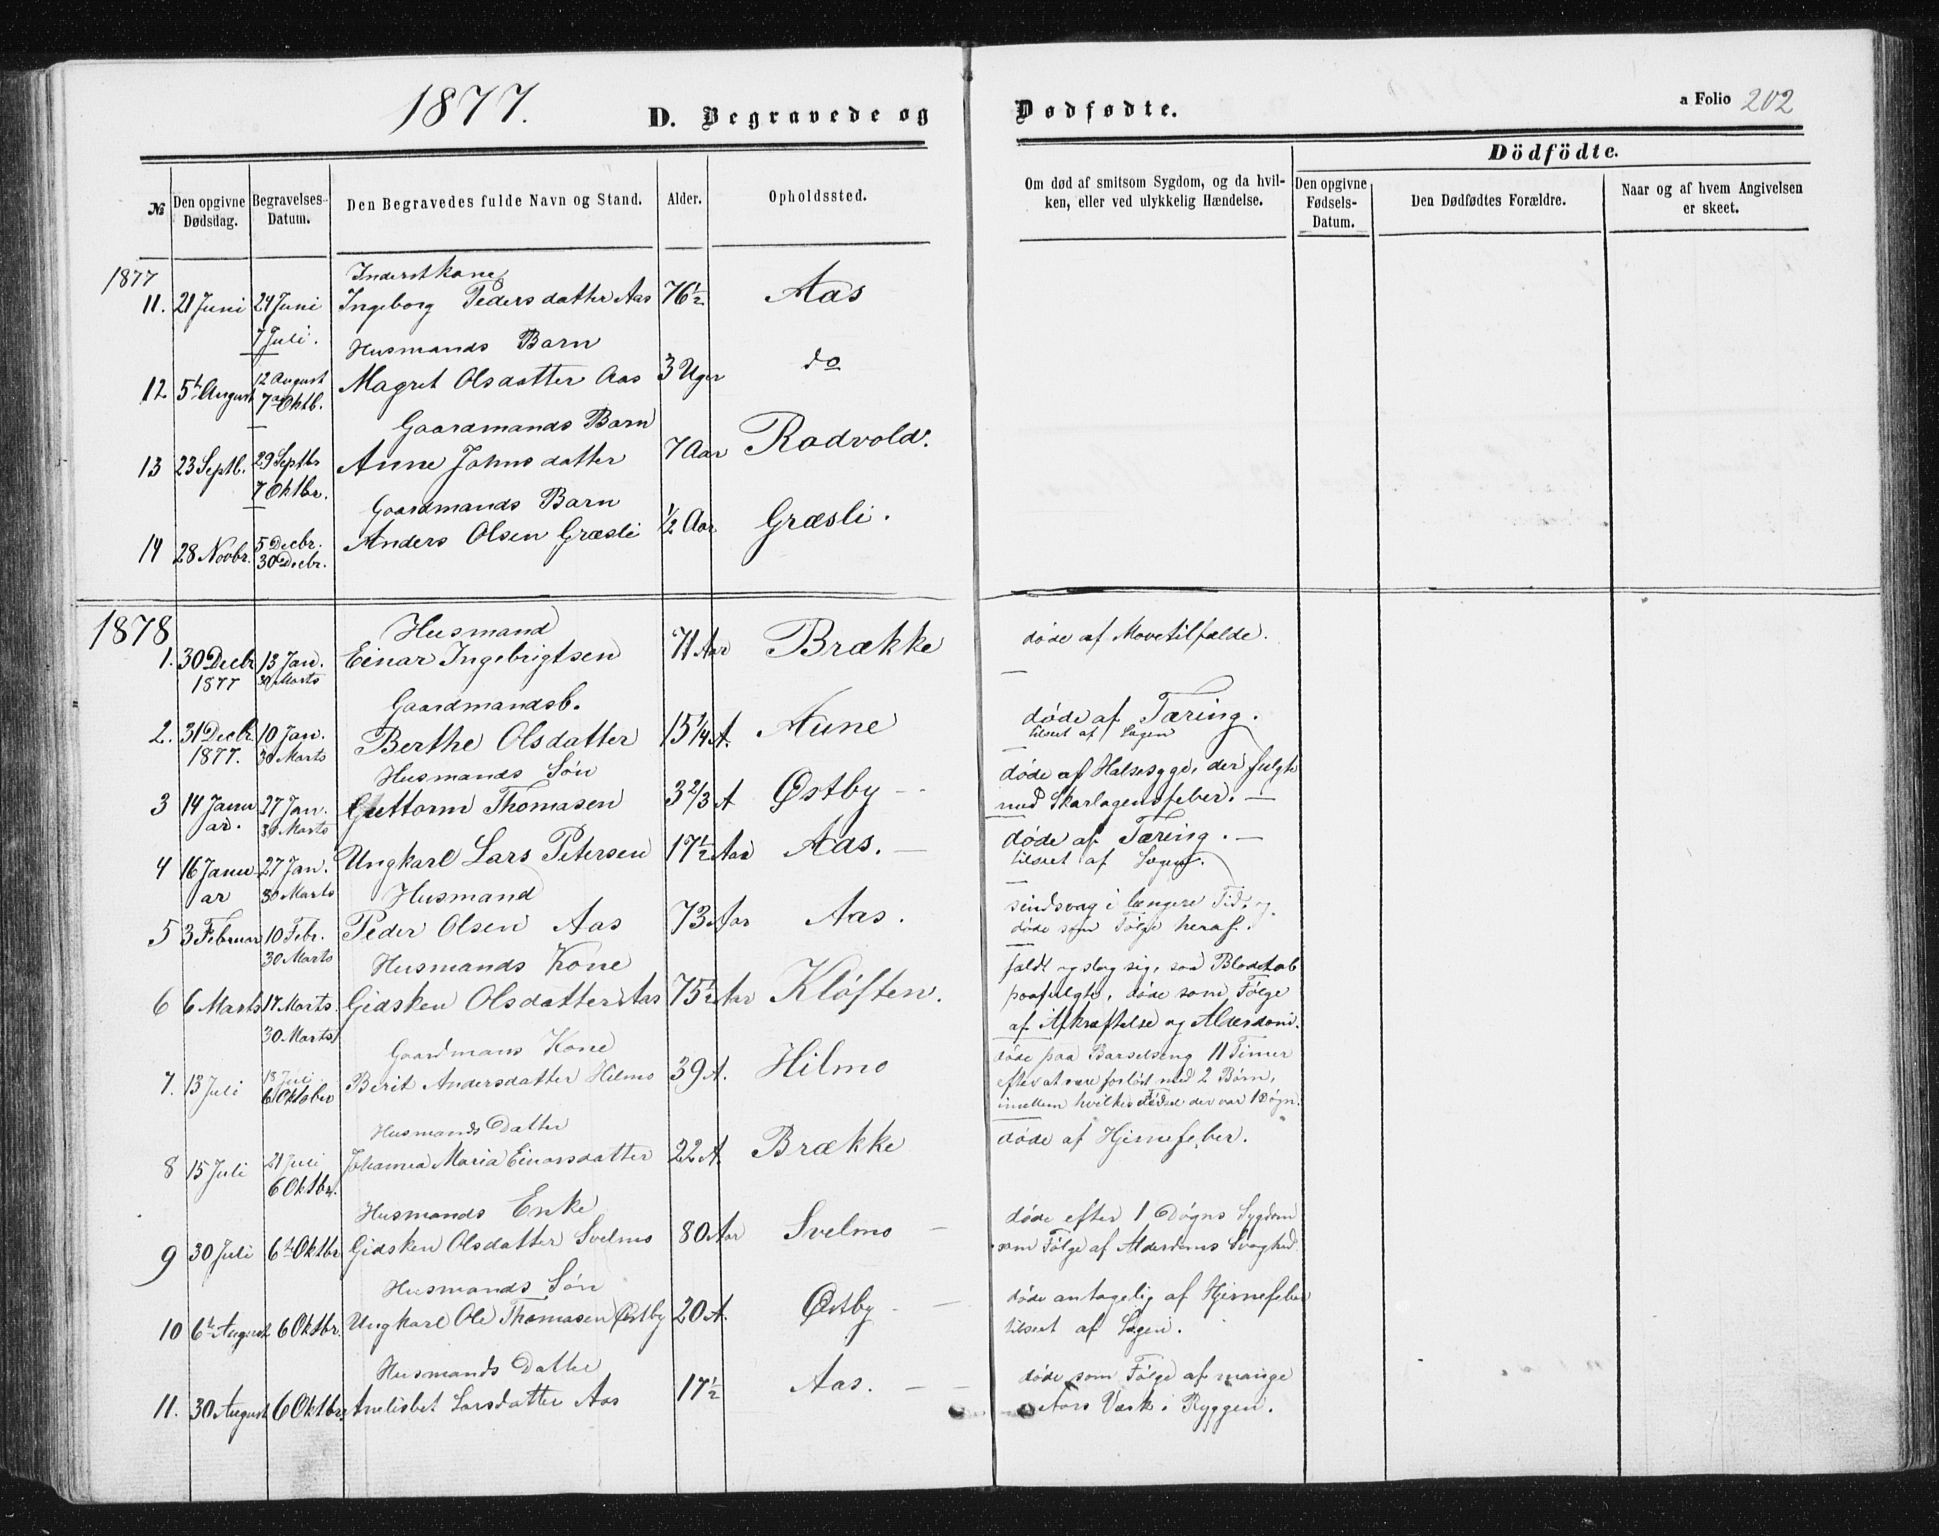 1877. D. Begravede og Dødfødte. a Folio 202
Dödfödte.
№ Den opgivne Dødsdag. Begravelses-Datum. Den Begravedes fulde Navn og Stand. Alder. Opholdssted. Om død af smitsom Sygdom, og da hvilken, eller ved ulykkelig Hændelse. Den opgivne Fødsels-Datum. Den Dødfødtes Forældre. Naar og af hvem Angivelsen er skeet.
1877
Inderstkone
11. 21 Juni 24 Juni Ingeborg Pedersdatter Aas 76½ Aas
7 Juli.
Husmands Barn
12 5te August 12 August Magret Olsdatter Aas 3 Uger do
7 Oktb.
Gaardmands Barn
13 23 Septb. 29 Septbr Anne Johnsdatter 7 Aar Rodvold.
7 Oktbr.
Gaardmands Barn
14 28 Novbr. 5 Decbr. Anders Olsen Græsli ½ Aar Græsli.
30 Decbr.
1878
Husmand
1. 30 Decbr 13 Jan. Einar Ingebrigtsen 71 Aar Brække døde af Mavetilfælde.
1877 30 Marts
Gaardmandsb.
2. 31 Decbr 10 Jan. Berthe Olsdatter 15¼ A. Aune døde af Tæring.
1877. 30 Marts tilseet af Lægen
Husmands Søn
3 14 Janu 27 Jan. Guttorm Thomasen 3⅔ A Østby - døde af Halsesyge, der fulgte
ar. 30 Marts med Skarlagensfeber. —
4 16 Janu 27 Jan. Ungkarl Lars Petersen 17½ Aar Aas. — døde af Tæring. —
ar 30 Marts tilseet af Lægen.
Husmand
5 3 Februar 10 Febr. Peder Olsen Aas 73 Aar Aas. sindsvag i længere Tid, og
30 Marts døde som Følge heraf.
Husmands Kone
6 6 Marts 17 Marts. Gidsken Olsdatter Aas 75½ Aar Kløften. faldt og slog sig, saa Blodetab
30 Marts paafulgte, døde som Følge
af Afkræftelse og Alderdom.
Gaardmans Kone
7. 13 Juli 18 Juli Berit Andersdatter Hilmo 39 A. Hilmo døde paa Barselseng 11 Timer
6 Oktober efter at være forløst med 2 Børn,
imellem hvilkes Fødsel der var 1 Døgn.
Husmands Datter
8 15 Juli 21 Juli Johanna Maria Einarsdatter 22 A. Brække døde af Hjernefeber.
6 Oktbr.
Husmands Enke
9 30 Juli 6te Oktbr Gidsken Olsdatter Svelmo 80 Aar Svelmo — døde efter 1 Døgns Sygdom
som Følge af Alderdoms Svaghed.
Husmands Søn
10 6te August 6 Oktbr. Ungkarl Ole Thomasen Østby 20 A. Østby - — døde antagelig af Hjernefeber
tilseet af Lægen.
Husmands Datter
11. 30 August 6 Oktbr Anelisbet Larsdatter Aas 17½ Aas. — — døde som Følge af mange
Aars Værk i Ryggen.